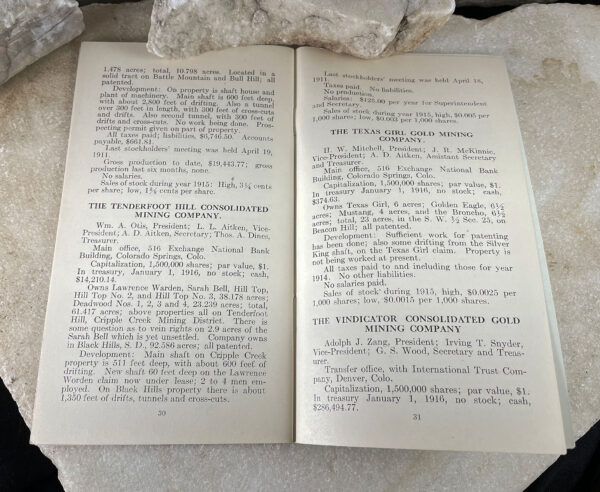 1.478 acres; total, 10.798 acres. Located in a
solid tract on Battle Mountain and Bull Hill; all
patented.
Development: On property is shaft house and
plant of machinery. Main shaft is 600 feet deep,
with about 2,800 feet of drifting. Also a tunnel
over 300 feet in length, with 300 feet of cross-cuts
and drifts. Also second tunnel, with 300 feet of
drifts and cross-cuts. No work being done. Pros-
pecting permit given on part of property.
All taxes paid; liabilities, $6,746.50. Accounts
payable, $661.81.
Last stockholders' meeting was held April 19,
1911.
Gross production to date, $19,443.77; gross
production last six months, none.
No salaries.
Sales of stock during year 1915: High, 3¼ cents
per share; low, 1⅝ cents per share.
THE TENDERFOOT HILL CONSOLIDATED
MINING COMPANY.
Wm. A. Otis, President; L. L. Aitken, Vice-
President; A. D. Aitken, Secretary; Thos. A. Dines,
Treasurer.
Main office, 516 Exchange National Bank
Building, Colorado Springs, Colo.
Capitalization, 1,500,000 shares; par value, $1.
In treasury, January 1, 1916, no stock; cash,
$14,210.14.
Owns Lawrence Warden, Sarah Bell, Hill Top,
Hill Top No. 2, and Hill Top No. 3, 38.178 acres;
Deadwood Nos. 1, 2, 3 and 4, 23.239 acres; total,
61.417 acres; above properties all on Tenderfoot
Hill, Cripple Creek Mining District. There is
some question as to vein rights on 2.9 acres of the
Sarah Bell which is yet unsettled. Company owns
in Black Hills, S. D., 92.586 acres; all patented.
Development: Main shaft on Cripple Creek
property is 511 feet deep, with about 600 feet of
drifting. New shaft 60 feet deep on the Lawrence
Worden claim now under lease; 2 to 4 men em-
ployed. On Black Hills property there is about
1,350 feet of drifts, tunnels and cross-cuts.
30
Last stockholders' meeting was held April 18,
1911.
Taxes paid. No liabilities.
No production.
Salaries: $125.00 per year for Superintendent
and Secretary.
Sales of stock during year 1915, high, $0.005 per
1,000 shares; low, $0.003 per 1,000 shares.
THE TEXAS GIRL GOLD MINING
COMPANY.
H. W. Mitchell, President; J. R. McKinnie,
Vice-President; A. D. Aitken, Assistant Secretary
and Treasurer.
Main office, 516 Exchange National Bank
Building, Colorado Springs, Colo.
Capitalization, 1,500,000 shares; par value, $1.
In treasury January 1, 1916, no stock; cash,
$374.63.
Owns Texas Girl, 6 acres; Golden Eagle, 6½
acres; Mustang, 4 acres, and the Broncho, 6½
acres; total, 23 acres, in the S. W. ¼ Sec. 25, on
Beacon Hill; all patented.
Development: Sufficient work for patenting
has been done; also some drifting from the Silver
King shaft, on the Texas Girl claim. Property is
not being worked at present.
All taxes paid to and including those for year
1914. No other liabilities.
No salaries paid.
Sales of stock during 1915, high, $0.0025 per
1,000 shares; low, $0.0015 per 1,000 shares.
THE VINDICATOR CONSOLIDATED GOLD
MINING COMPANY
Adolph J. Zang, President; Irving T. Snyder,
Vice-President; G. S. Wood, Secretary and Treas-
urer.
Transfer office, with International Trust Com-
pany, Denver, Colo.
Capitalization, 1,500,000 shares; par value, $1.
In treasury January 1, 1916, no stock; cash,
$286,494.77.
31